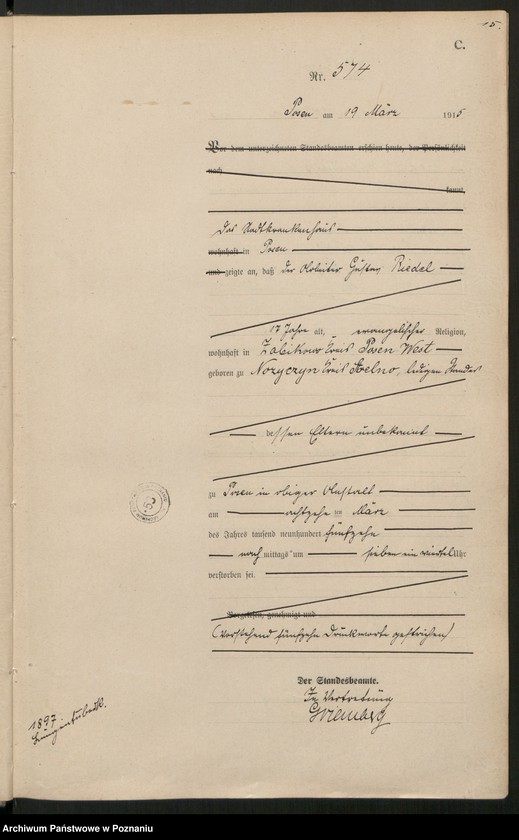 15.
C.
Nr. 574
Posen am 19 März 1915
Vor dem unterzeichneten Standesbeamten erschien heute, der Persönlichkeit
nach
kannt,
Das Stadtkrankenhaus
wohnhaft in Posen
und zeigte an, daß der Arbeiter Gustav Riedel
17 Jahre alt, evangelischer Religion,
wohnhaft in Zabikowo Kreis Posen West
geboren zu Kreis Strelno, ledigen Standes
dessen Eltern unbekannt
zu Posen in obiger Anstalt
am achtzehn ten März
des Jahres tausend neunhundert fünfzehn
nach mittags um sieben ein viertel Uhr
verstorben sei.
Vorgelesen, genehmigt und
(Vorstehend fünfzehn Druckworte gestrichen)
Der Standesbeamte.
In Vertretung
1897.